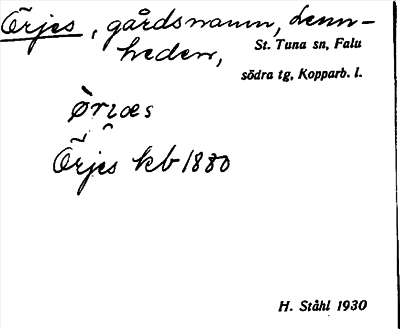 Örjes, gårdsnamn, Lenn-
heden,
St. Tuna sn, Falu
södra tg, Kopparb. l.
Örjes kb 1880
H. Ståhl 1930